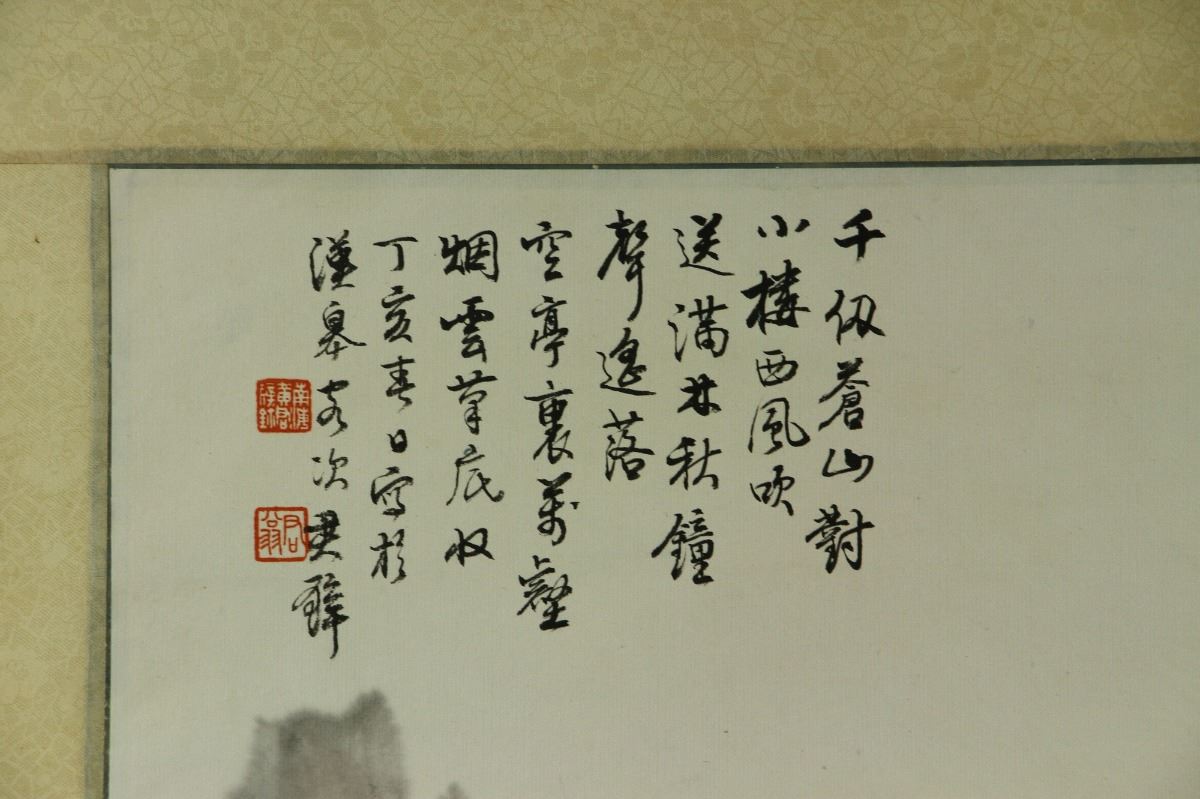 千仭蒼山對
小樓西風吹
送滿林秋鐘
聲遙落
空亭裏萬壑
烟雲筆底收
丁亥春日寫於
漢皋客次君璧
君翁